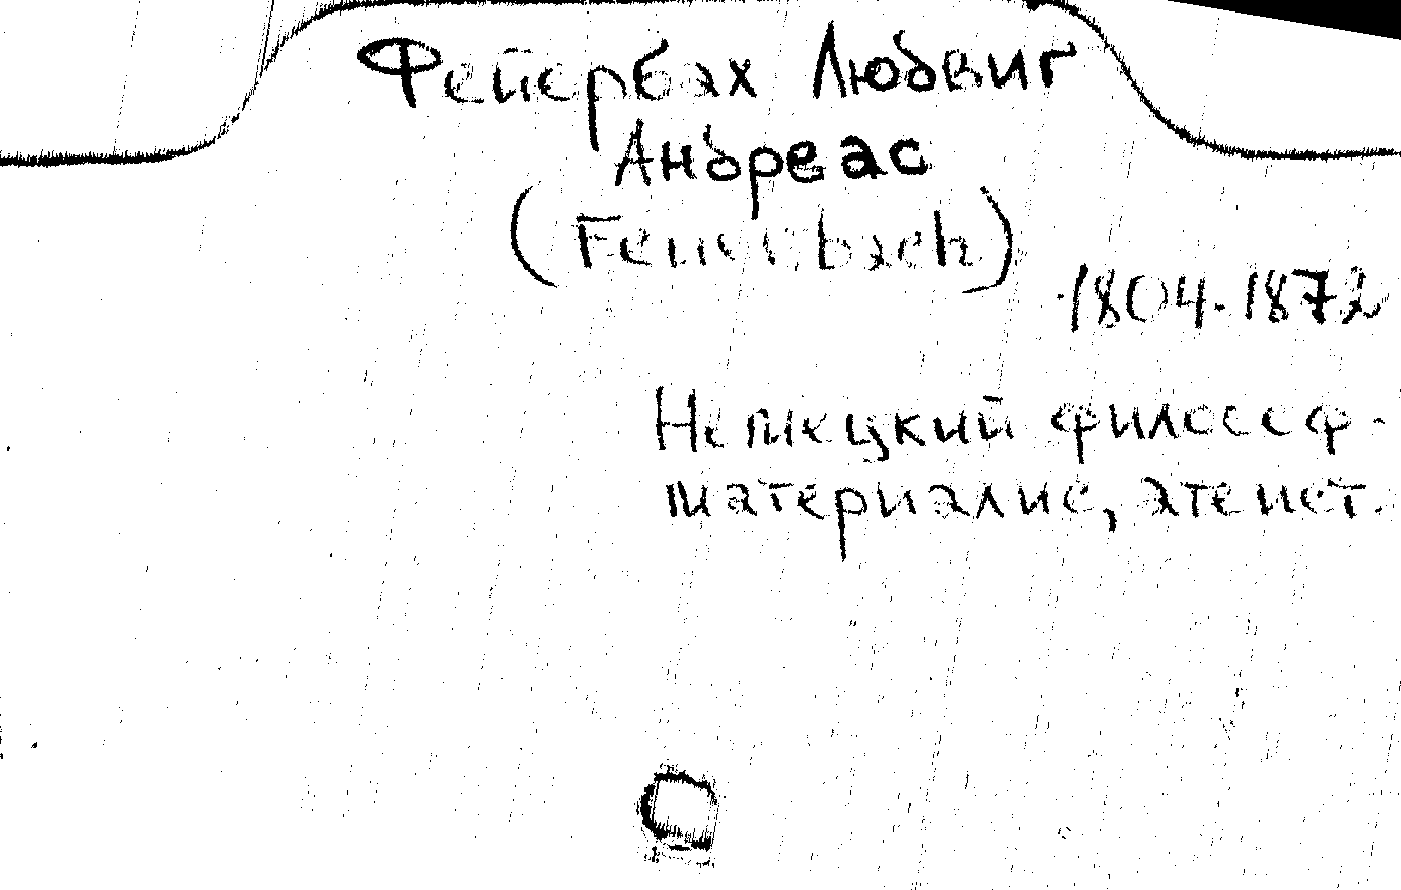 Фейербах Людвиг
Андреас
(Feuerbach)
1804-1872
Немецкий философ-
материалис, атеист.